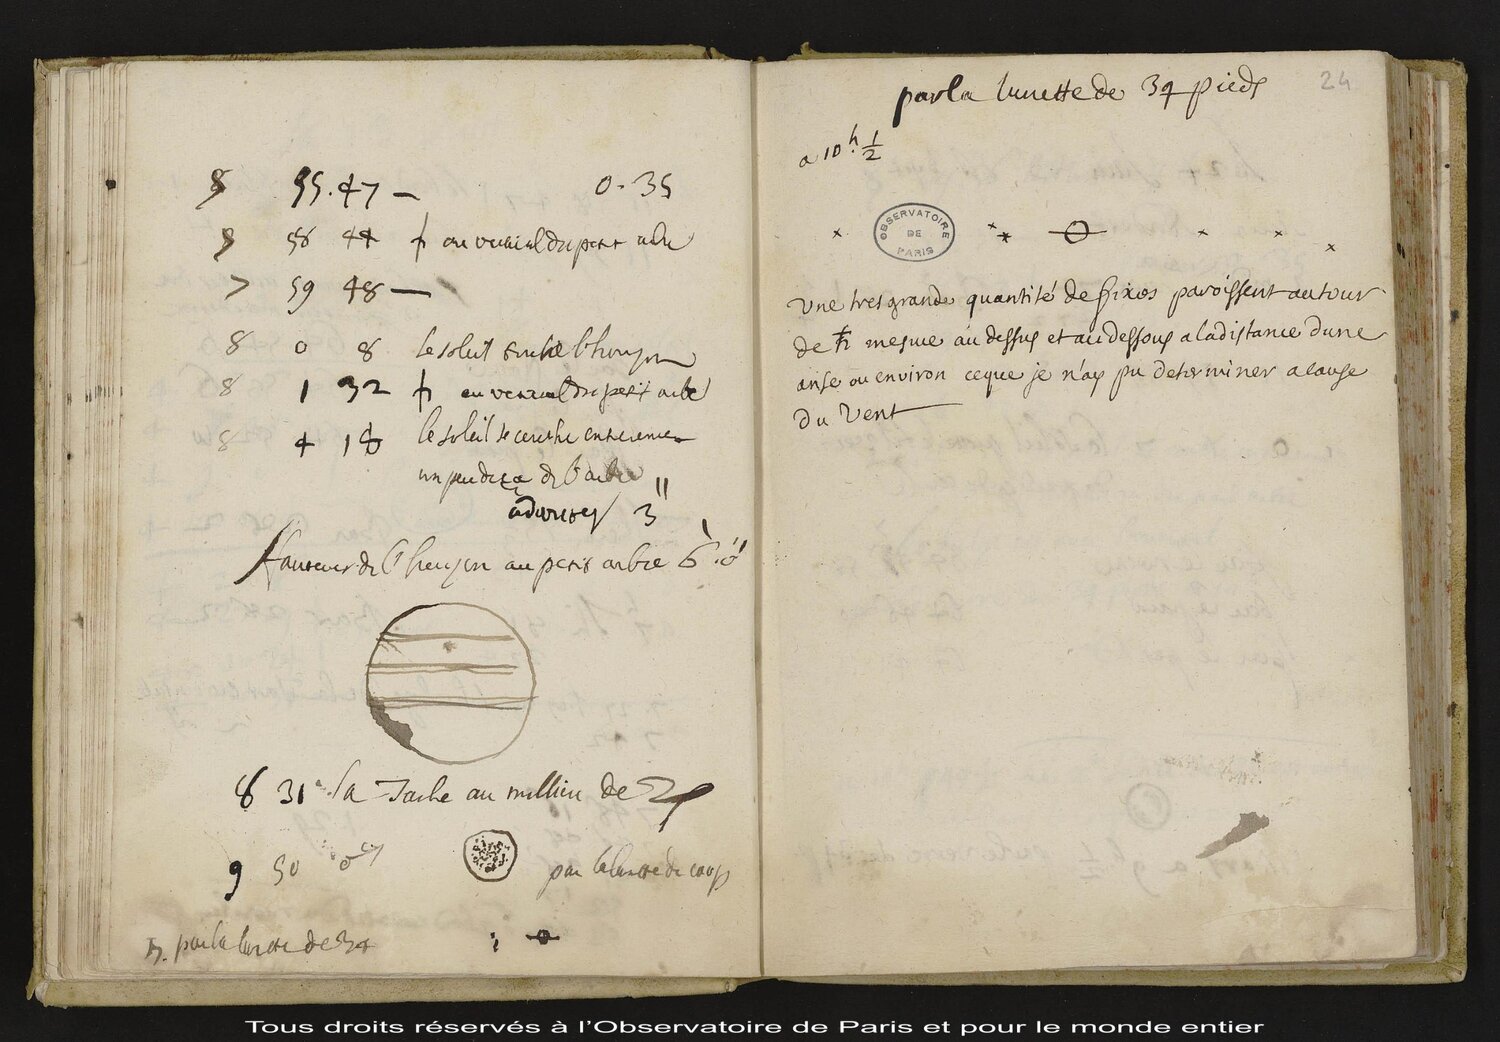 8 55.47 — 0-35
58 44
7 59 48 —
8 0 8 le soleil touche l'horison
8 1 32 au vertical du petit arbre
8 4 18 le soleil se couche entierement
un peu deça de l'arbre
adjoutez 3"
hauteur de l'horison au petit arbre 6' 0"
8 31 la Tache au millieu de ♃
9 50 ♂ par la lunette de
♄. par la lunette de 34
par la lunette de 34 pieds
24
a 10 h. 1/2
OBSERVATOIRE DE PARIS
Une tres grande quantité de fixes paroissent autour
de ♄ mesme au dessus et au dessous a la distance d'une
anse ou environ ce que je n'ay pu determiner a cause
du vent
Tous droits réservés à l'Observatoire de Paris et pour le monde entier